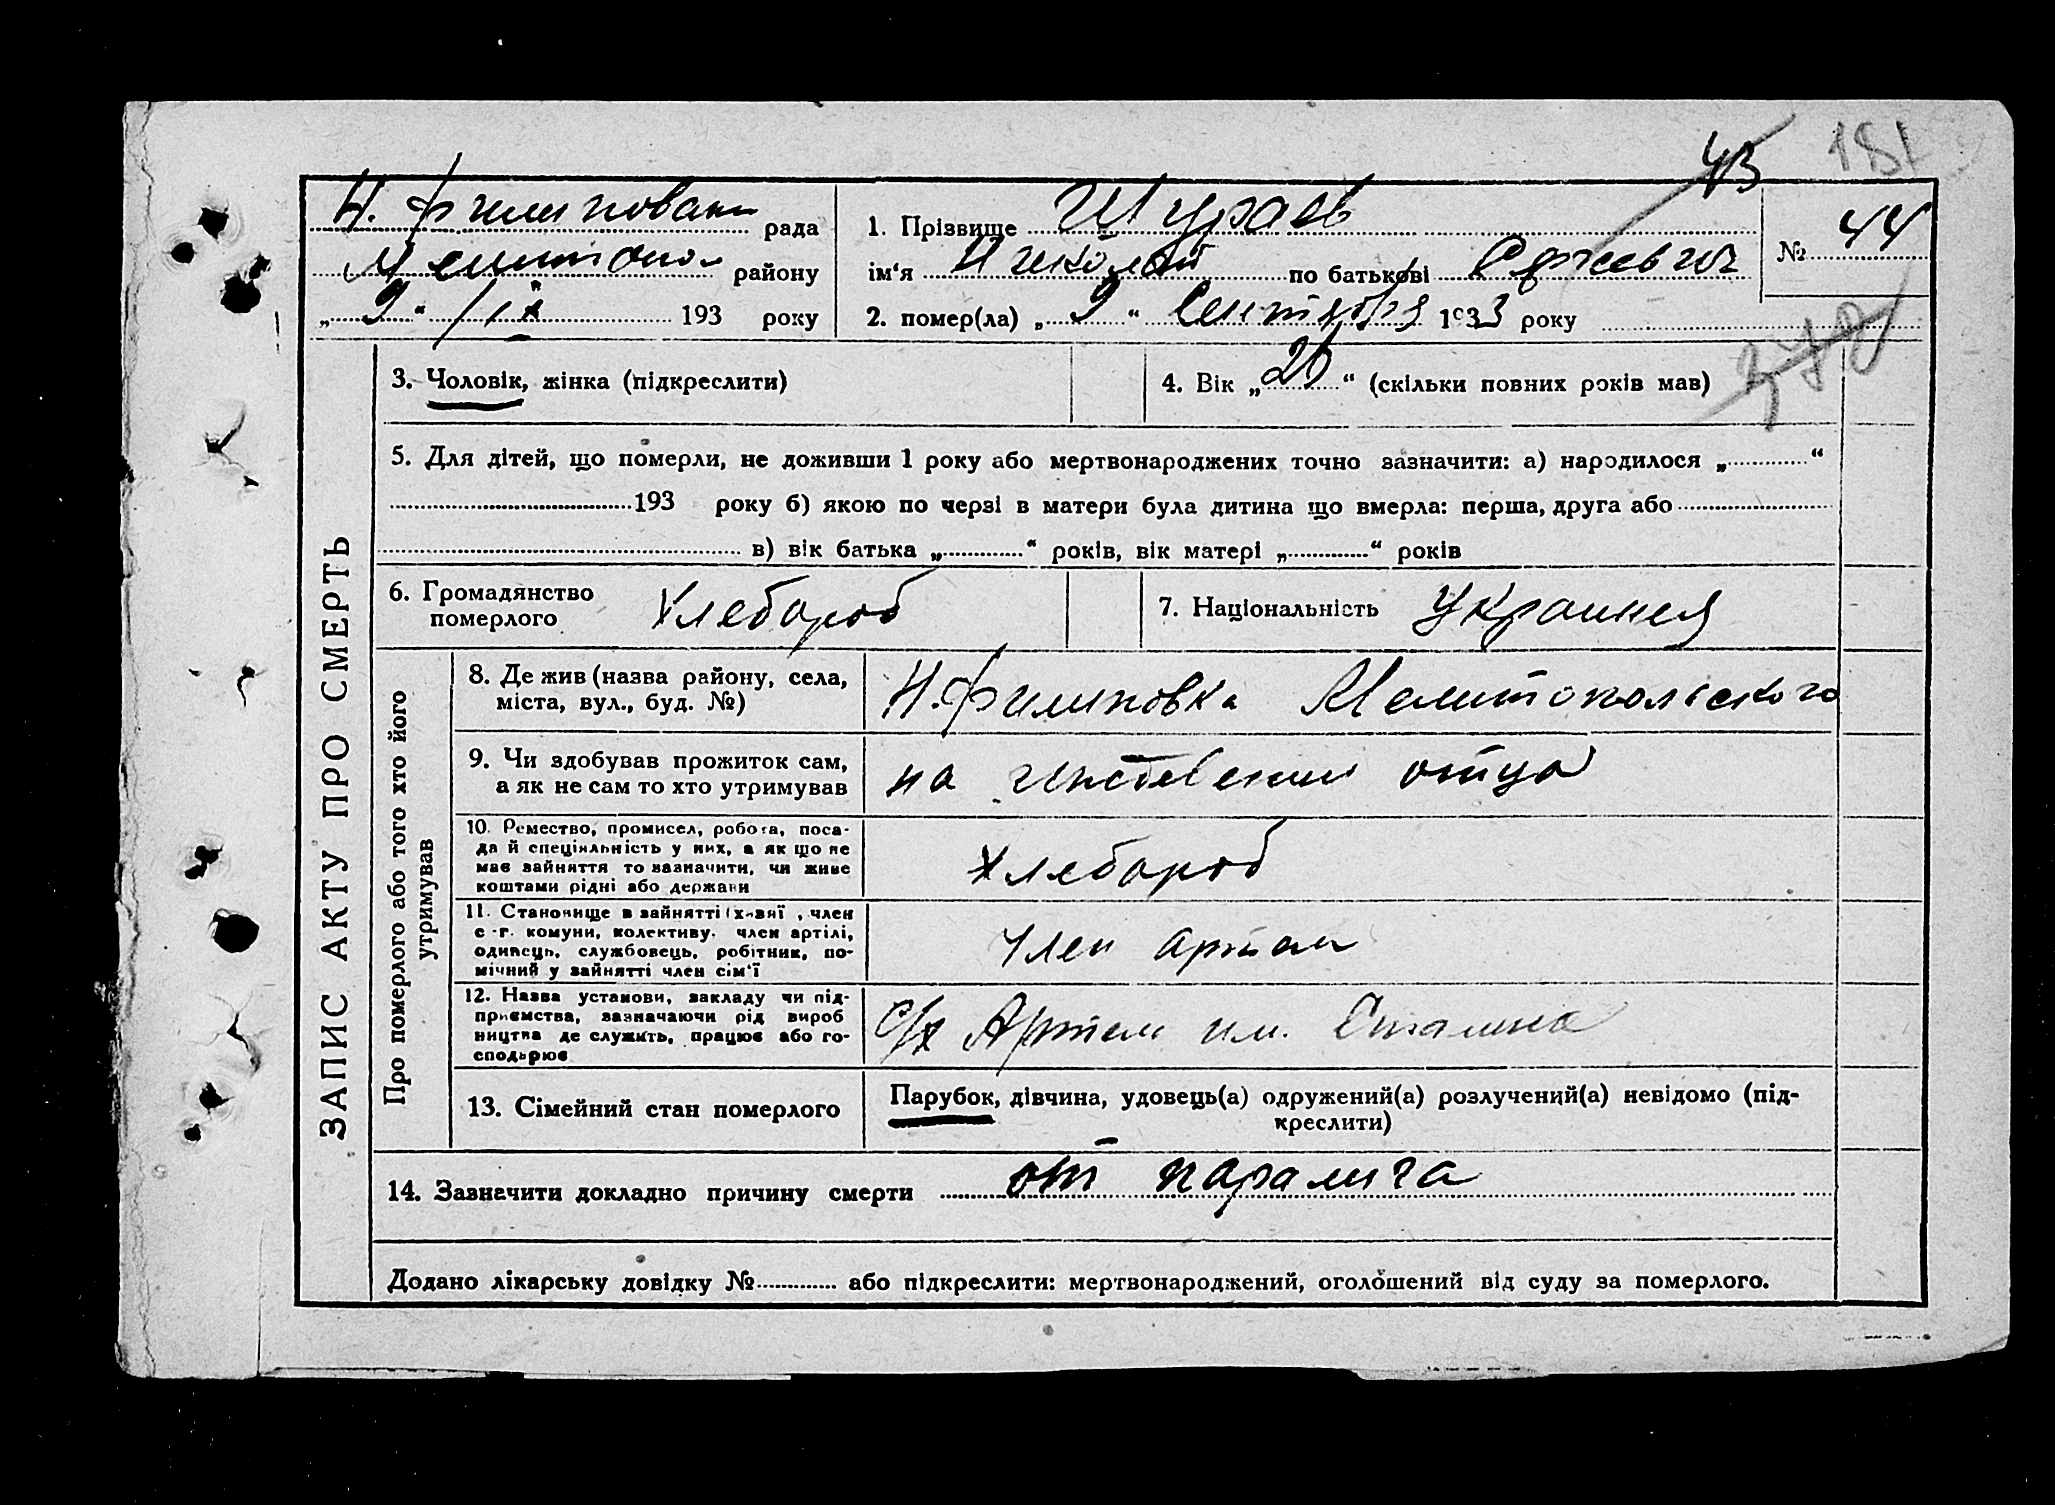 43 181
Н. Филиповка рада
Мелитопол району
„ 9 “ /IX 193 року
1. Прізвище Шураев
ім‘я Николай по батькові Сергеевич
2. помер(ла) „ 9 “ Сентября 1933 року
№ 44
378
ЗАПИС АКТУ ПРО СМЕРТЬ
3. Чоловік, жінка (підкреслити)
4. Вік „ “ (скільки повних років мав)
5. Для дітей, що померли, не доживши 1 року або мертвонароджених точно зазначити: а) народилося „ “
193 року б) якою по черзі в матери була дитина що вмерла: перша, друга або
в) вік батька „ “ років, вік матері „ “ років
6. Громадянство
померлого Хлебороб
7. Національність Украинец
Про померлого або того хто його
утримував
8. Де жив (назва району, села,
міста, вул., буд. №)
Н. Филиповка Мелитопольского
9. Чи здобував прожиток сам,
а як не сам то хто утримував
на иждевении отца
10. Ремество, промисел, робота, поса-
да й спеціяльність у них, а як що не
має зайняття то зазначити, чи живе
коштами рідні або держави
Хлебороб
11. Становище в зайнятті (х-ввї , член
с -г. комуни, колективу. член артілі,
одинець, службовець, робітник, по-
мічний у зайнятті член сім‘ї
член артели
12. Назва установи, закладу чи під-
приємства, зазначаючи рід вироб
ництва де служить, працює або го-
сподарює
с/х Артель им. Сталина
13. Сімейний стан померлого
Парубок, дівчина, удовець(а) одружений(а) розлучений(а) невідомо (під-
креслити)
14. Зазначити докладно причину смерти от паралича
Додано лікарську довідку № або підкреслити: мертвонароджений, оголошений від суду за померлого.